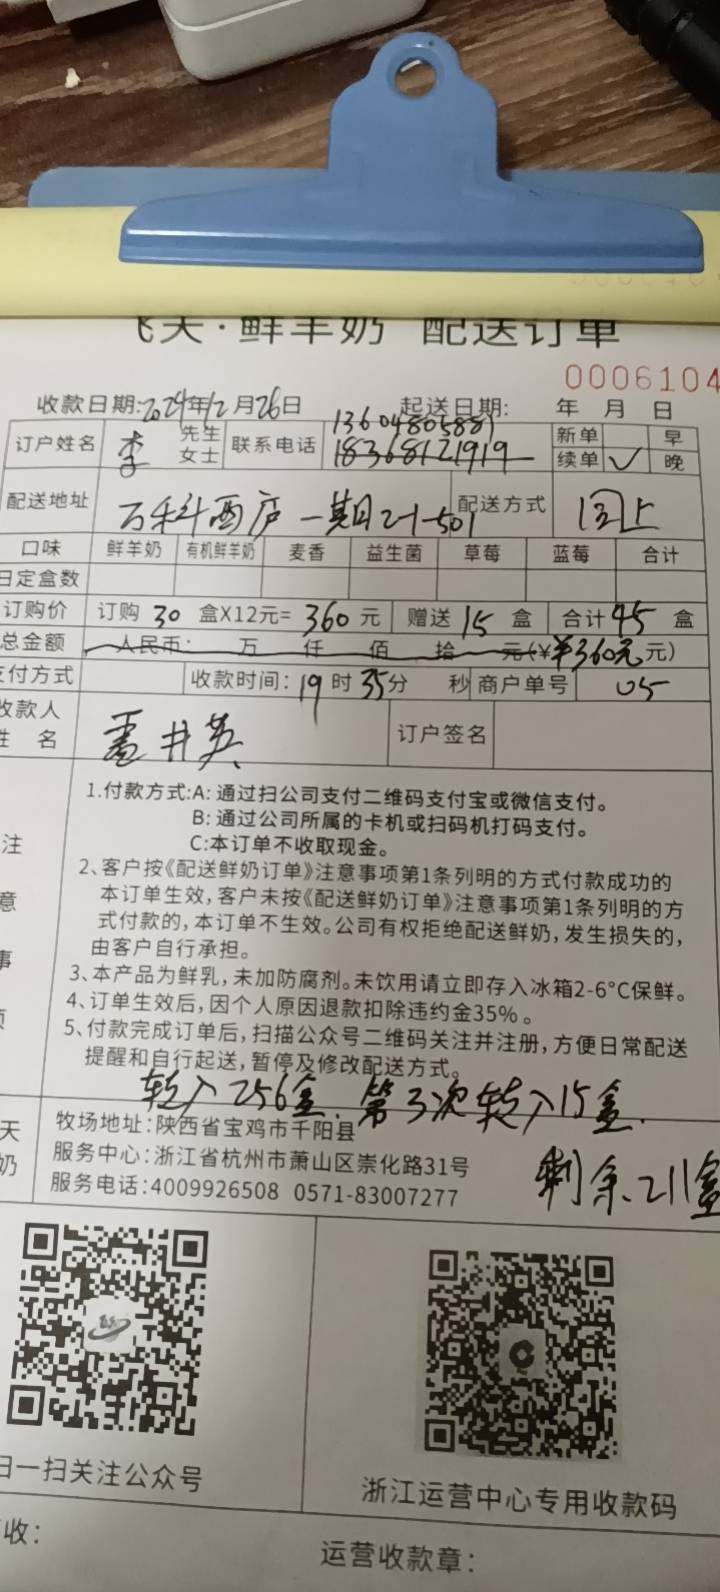 飞天·鲜羊奶 配送订单
0006104
收款日期:2024年12月26日 起送日期: 年 月 日
订户姓名 李 先生 女士 联系电话 13604805881 18368121919 新单 早
续单 ✓ 晚
配送地址 万科西庐一期21-501 配送方式 同上
口味 鲜羊奶 有机鲜羊奶 麦香 益生菌 草莓 蓝莓 合计
日定盒数
订购价 订购 30 盒X12元= 360 元 赠送 15 盒 合计 45 盒
总金额 人民币: 万 仟 佰 拾 元(¥ ¥360元 元)
支付方式 收款时间: 19 时 35 分 秒 商户单号 05
收款人
姓 名 井英 订户签名
注
意
事
项
1.付款方式:A: 通过扫公司支付二维码支付宝或微信支付。
B: 通过公司所属的卡机或扫码机打码支付。
C:本订单不收取现金。
2、客户按《配送鲜奶订单》注意事项第1条列明的方式付款成功的
本订单生效,客户未按《配送鲜奶订单》注意事项第1条列明的方
式付款的,本订单不生效。公司有权拒绝配送鲜奶,发生损失的,
由客户自行承担。
3、本产品为鲜乳,未加防腐剂。未饮用请立即存入冰箱2-6°C保鲜。
4、订单生效后,因个人原因退款扣除违约金35%。
5、付款完成订单后,扫描公众号二维码关注并注册,方便日常配送
提醒和自行起送,暂停及修改配送方式。
转入256盒. 第3次转入15盒.
天
奶
牧场地址:陕西省宝鸡市千阳县
服务中心:浙江省杭州市萧山区崇化路31号
服务电话:4009926508 0571-83007277
剩余.211盒
扫一扫关注公众号
浙江运营中心专用收款码
收:
运营收款章: